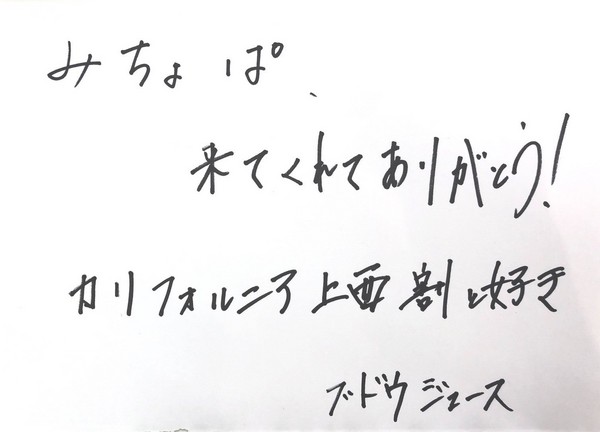 みちょぱ、
来てくれてありがとう!
カリフォルニア上西割と好き
ブドウジュース